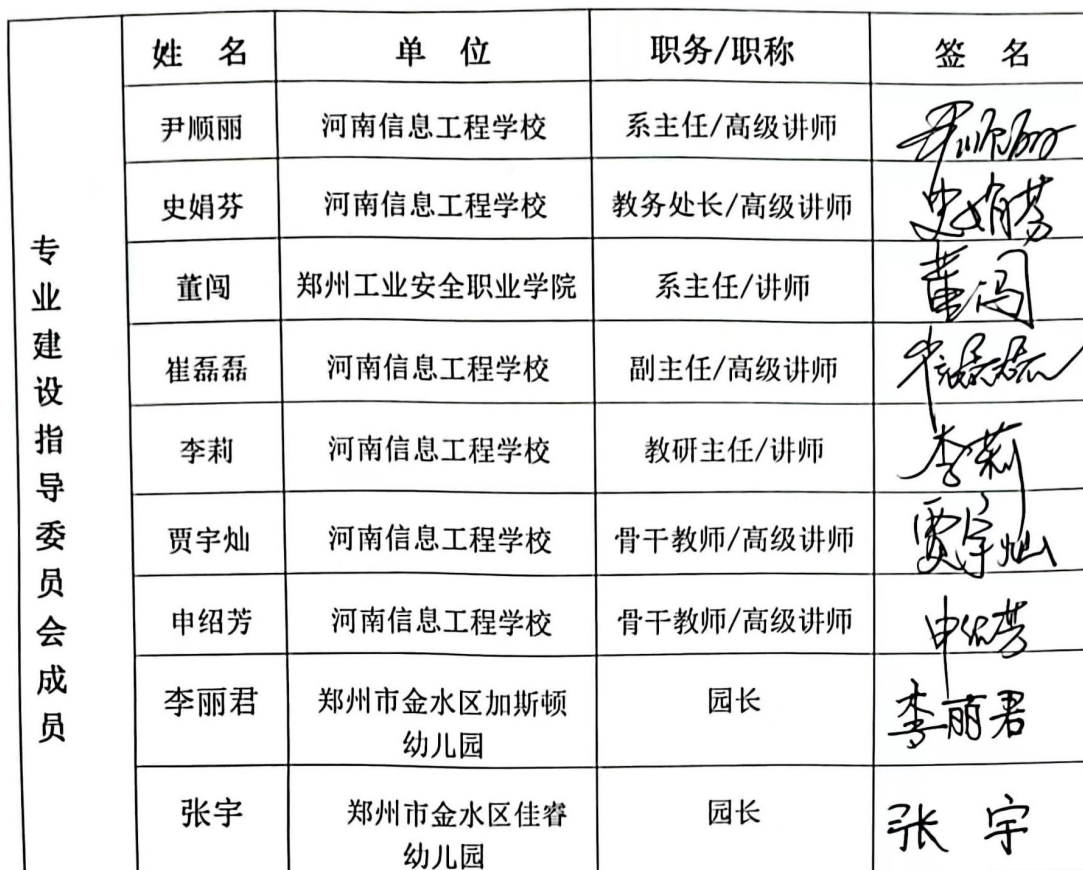 姓 名 单 位 职务/职称 签 名
尹顺丽 河南信息工程学校 系主任/高级讲师 尹顺丽
史娟芬 河南信息工程学校 教务处长/高级讲师 史娟芬
董闯 郑州工业安全职业学院 系主任/讲师 董闯
崔磊磊 河南信息工程学校 副主任/高级讲师 崔磊磊
李莉 河南信息工程学校 教研主任/讲师 李莉
贾宇灿 河南信息工程学校 骨干教师/高级讲师 贾宇灿
申绍芳 河南信息工程学校 骨干教师/高级讲师 申绍芳
李丽君 郑州市金水区加斯顿 园长 李丽君
幼儿园
张宇 郑州市金水区佳睿 园长 张宇
幼儿园
专业建设指导委员会成员